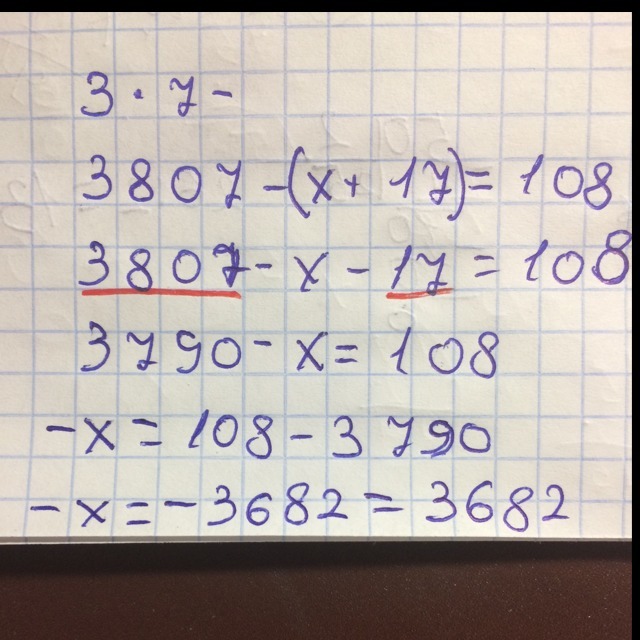 3 · 7 -
3807 - (x + 17) = 108
3807 - x - 17 = 108
3790 - x = 108
- x = 108 - 3790
- x = - 3682 = 3682